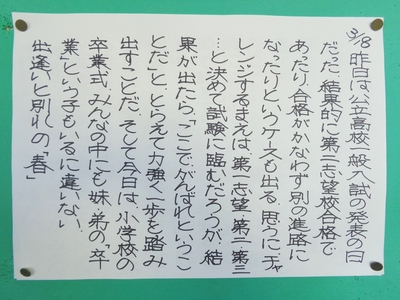 3/18 昨日は、公立高校一般入試の発表の日
だった。結果的に第二志望校合格で
あったり、合格がかなわず別の進路に
なったりというケースも出る。思うに、チャ
レンジするまえは、第一志望・第二・第三
…と決めて試験に臨むだろうが、結
果が出たら、「ここでがんばれというこ
とだ」と、とらえて力強く一歩を踏み
出すことだ。そして今日は、小学校の
卒業式。みんなの中にも妹・弟の「卒
業」という子もいるに違いない。
出逢いと別れの「春」